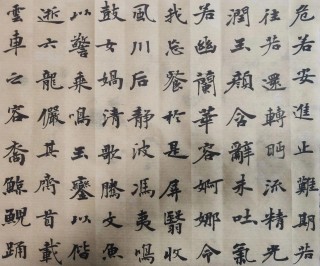 危若安進止難期若
往若還轉眄流精光
潤玉顏含辭未吐氣
若幽蘭華容婀娜令
我忘餐於是屏翳收
風川后靜波馮夷鳴
鼓女媧清歌騰文魚
以警乘鳴玉鑾以偕
逝六龍儼其齊首載
雲車之容裔鯨鯢踊